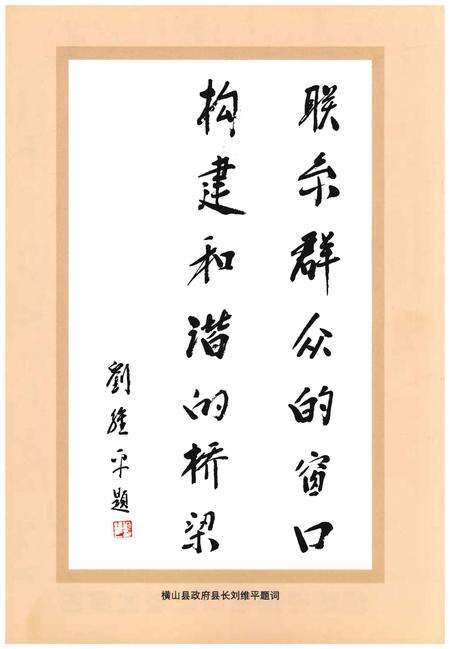 联系群众的窗口
构建和谐的桥梁
劉維平題
横山县政府县长刘维平题词